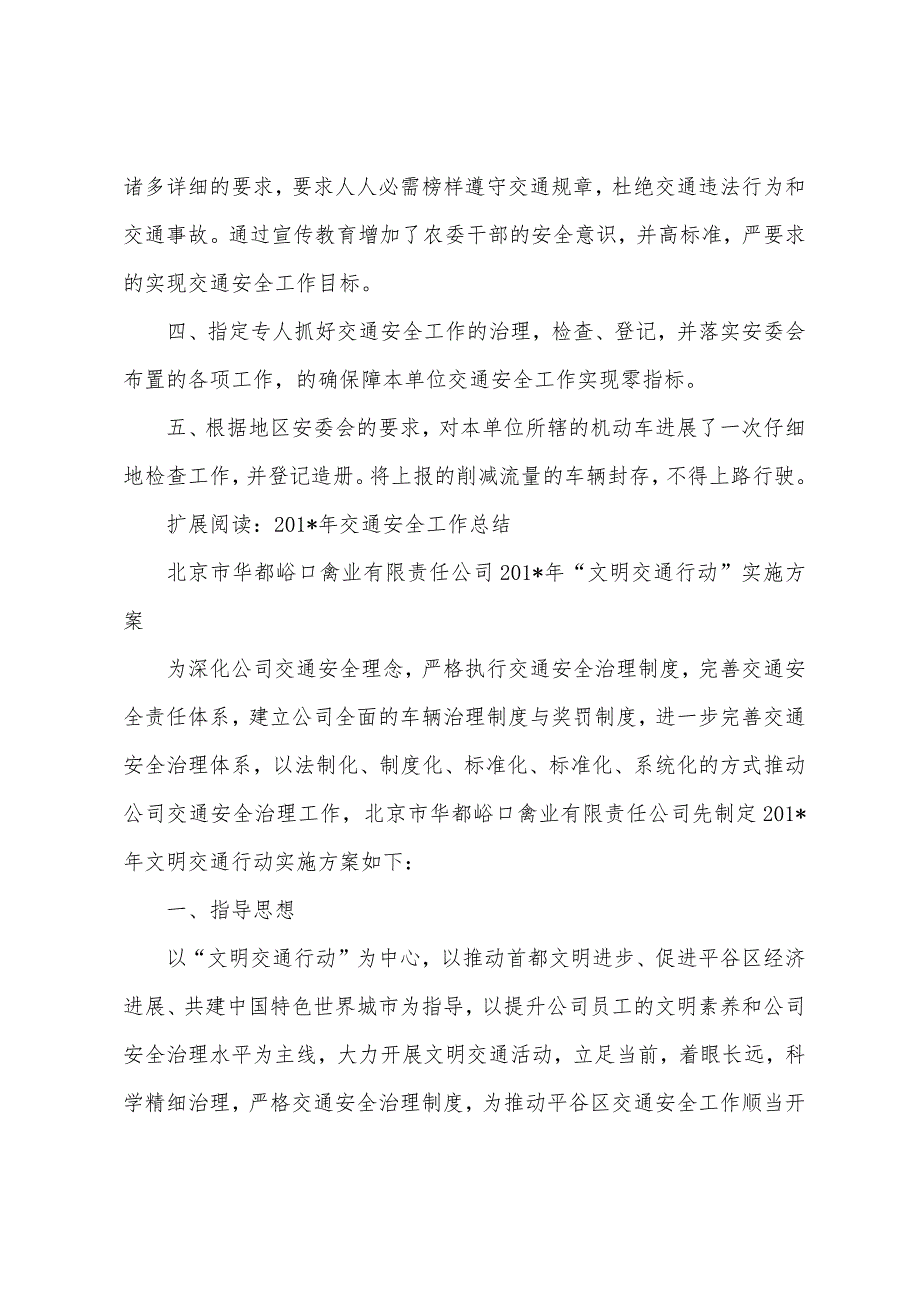 诸多详细的要求，要求人人必需榜样遵守交通规章，杜绝交通违法行为和
交通事故。通过宣传教育增加了农委干部的安全意识，并高标准，严要求
的实现交通安全工作目标。
四、指定专人抓好交通安全工作的治理，检查、登记，并落实安委会
布置的各项工作，的确保障本单位交通安全工作实现零指标。
五、根据地区安委会的要求，对本单位所辖的机动车进展了一次仔细
地检查工作，并登记造册。将上报的削减流量的车辆封存，不得上路行驶。
扩展阅读：201*年交通安全工作总结
北京市华都峪口禽业有限责任公司201*年“文明交通行动”实施方
案
为深化公司交通安全理念，严格执行交通安全治理制度，完善交通安
全责任体系，建立公司全面的车辆治理制度与奖罚制度，进一步完善交通
安全治理体系，以法制化、制度化、标准化、标准化、系统化的方式推动
公司交通安全治理工作，北京市华都峪口禽业有限责任公司先制定201*
年文明交通行动实施方案如下：
一、指导思想
以“文明交通行动”为中心，以推动首都文明进步、促进平谷区经济
进展、共建中国特色世界城市为指导，以提升公司员工的文明素养和公司
安全治理水平为主线，大力开展文明交通活动，立足当前，着眼长远，科
学精细治理，严格交通安全治理制度，为推动平谷区交通安全工作顺当开